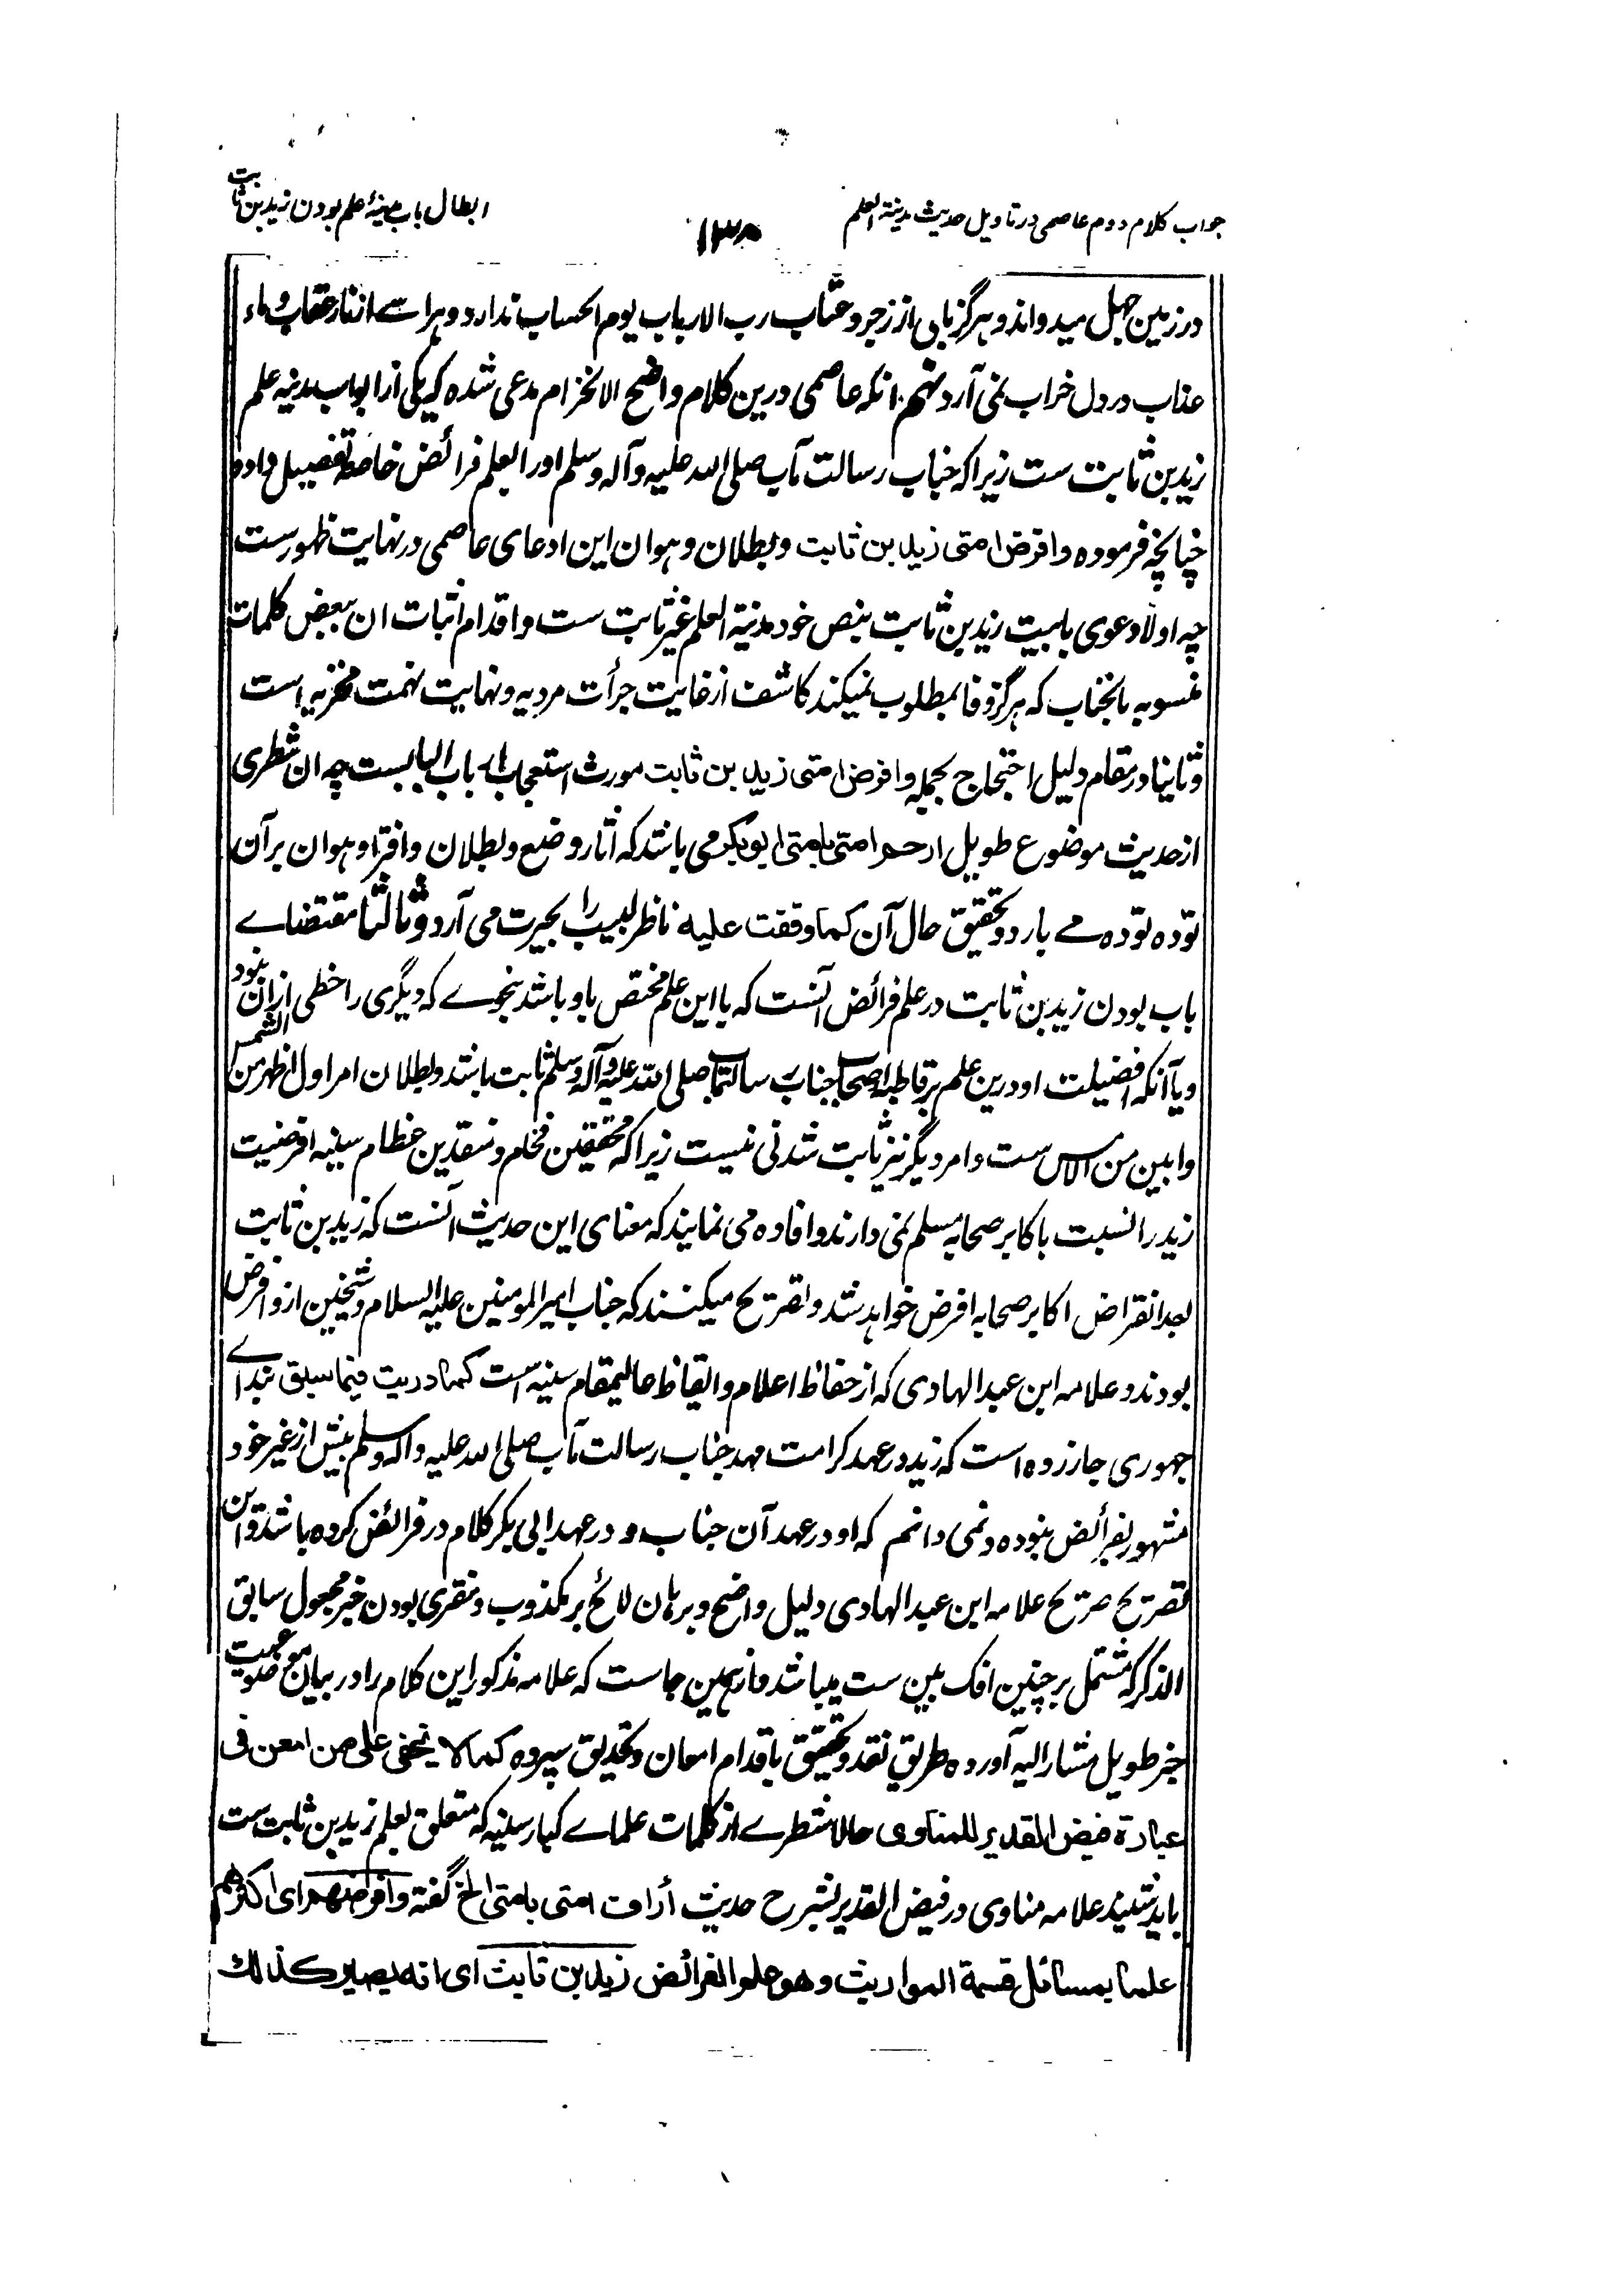 جواب کلام دوم عاصمی در تاویل حدیث مدینة العلم
١٣٨
ابطال باب مدینۂ علم بودن زید بن ثابت
در زمین جهل میدواند و هرگز بابی از زجر و عتاب رب الارباب یوم الحساب ندارد و هراسے از نار عقاب و ماء
عذاب در دل خراب نمی آرد نهم آنکه عاصمی درین کلام واضح الانخرام مدعی شده که یکی از ابواب مدینه علم
زید بن ثابت ست زیرا که جناب رسالت مآب صلی الله علیه وآله وسلم او را بعلم فرائض خاصة تفضیل داده
چنانچه فرموده وافرض امتی زید بن ثابت و بطلان و هوان این ادعای عاصمی در نهایت ظهورست
چه اولا دعوی بابیت زید بن ثابت بنص خود مدینة العلم غیر ثابت ست و اقدام اثبات ان ببعض کلمات
منسوبه بانجناب که هرگز وفا بمطلوب نمیکند کاشف از غایت جرأت مردیه و نهایت نهمت مخزیه است
وثانیا در مقام دلیل احتجاج بجمله وافرض امتی زید بن ثابت مورث استعجاب ارباب البابست چه ان شطری
از حدیث موضوع طویل ارحم امتی بامتی ابوبکر می باشد که آثار وضع و بطلان و افترا و هوان بر آن
توده توده مے بارد و تحقیق حال آن کما وقفت علیه ناظر لبیب را بحیرت می آرد وثالثا مقتضاے
باب بودن زید بن ثابت در علم فرائض آنست که یا این علم مختص باو باشد بنحوے که دیگری را حظی ازان نبود
ویا آنکه افضیلت او درین علم بر قاطبه اصحاب جناب رسالتمآب صلی الله علیه وآله وسلم ثابت باشد و بطلان امر اول اظهر من الشمس
وابین من الامس ست و امر دیگر نیز ثابت شدنی نیست زیرا که محققین فخام و منقدین عظام سنیه افرضیت
زید را نسبت باکابر صحابه مسلم نمی دارند و افاده می نمایند که معنای این حدیث آنست که زید بن ثابت
بعد انقراض اکابر صحابه افرض خواهد شد و تصریح میکنند که جناب امیر المومنین علیه السلام و شیخین ازو افرض
بودند و علامه ابن عبد الهادی که از حفاظ اعلام و ایقاظ عالیمقام سنیه است کما دریت فیما سبق بنداے
جهوری جار زده است که زید در عهد کرامت مهد جناب رسالت مآب صلی الله علیه وآله وسلم بیش از غیر خود
مشهور بفرائض نبوده و نمی دانم که او در عهد آن جناب و در عهد ابی بکر کلام در فرائض کرده باشد و این
تصریح صریح علامه ابن عبد الهادی دلیل واضح و برهان لائح بر مکذوب و مفتری بودن خبر مجعول سابق
الذکر که مشتمل بر چنین افک مبین ست میباشد و از همین جاست که علامه مذکور این کلام را در بیان موضوعیت
خبر طویل مشار الیه آورده طریق نقد و تحقیق باقدام امعان و تحدیق سپرده کما لا یخفی علی من امعن فی
عبارة فیض القدیر للمناوی حالا شطرے از کلمات علماے کبار سنیه که متعلق بعلم زید بن ثابت ست
باید شنید علامه مناوی در فیض القدیر بشرح حدیث أرأف امتی بامتی الخ گفته وافرضهم ای اکثرهم
علما بمسائل قسمة المواریث وهو علم الفرائض زید بن ثابت ای انه یصیر کذلك